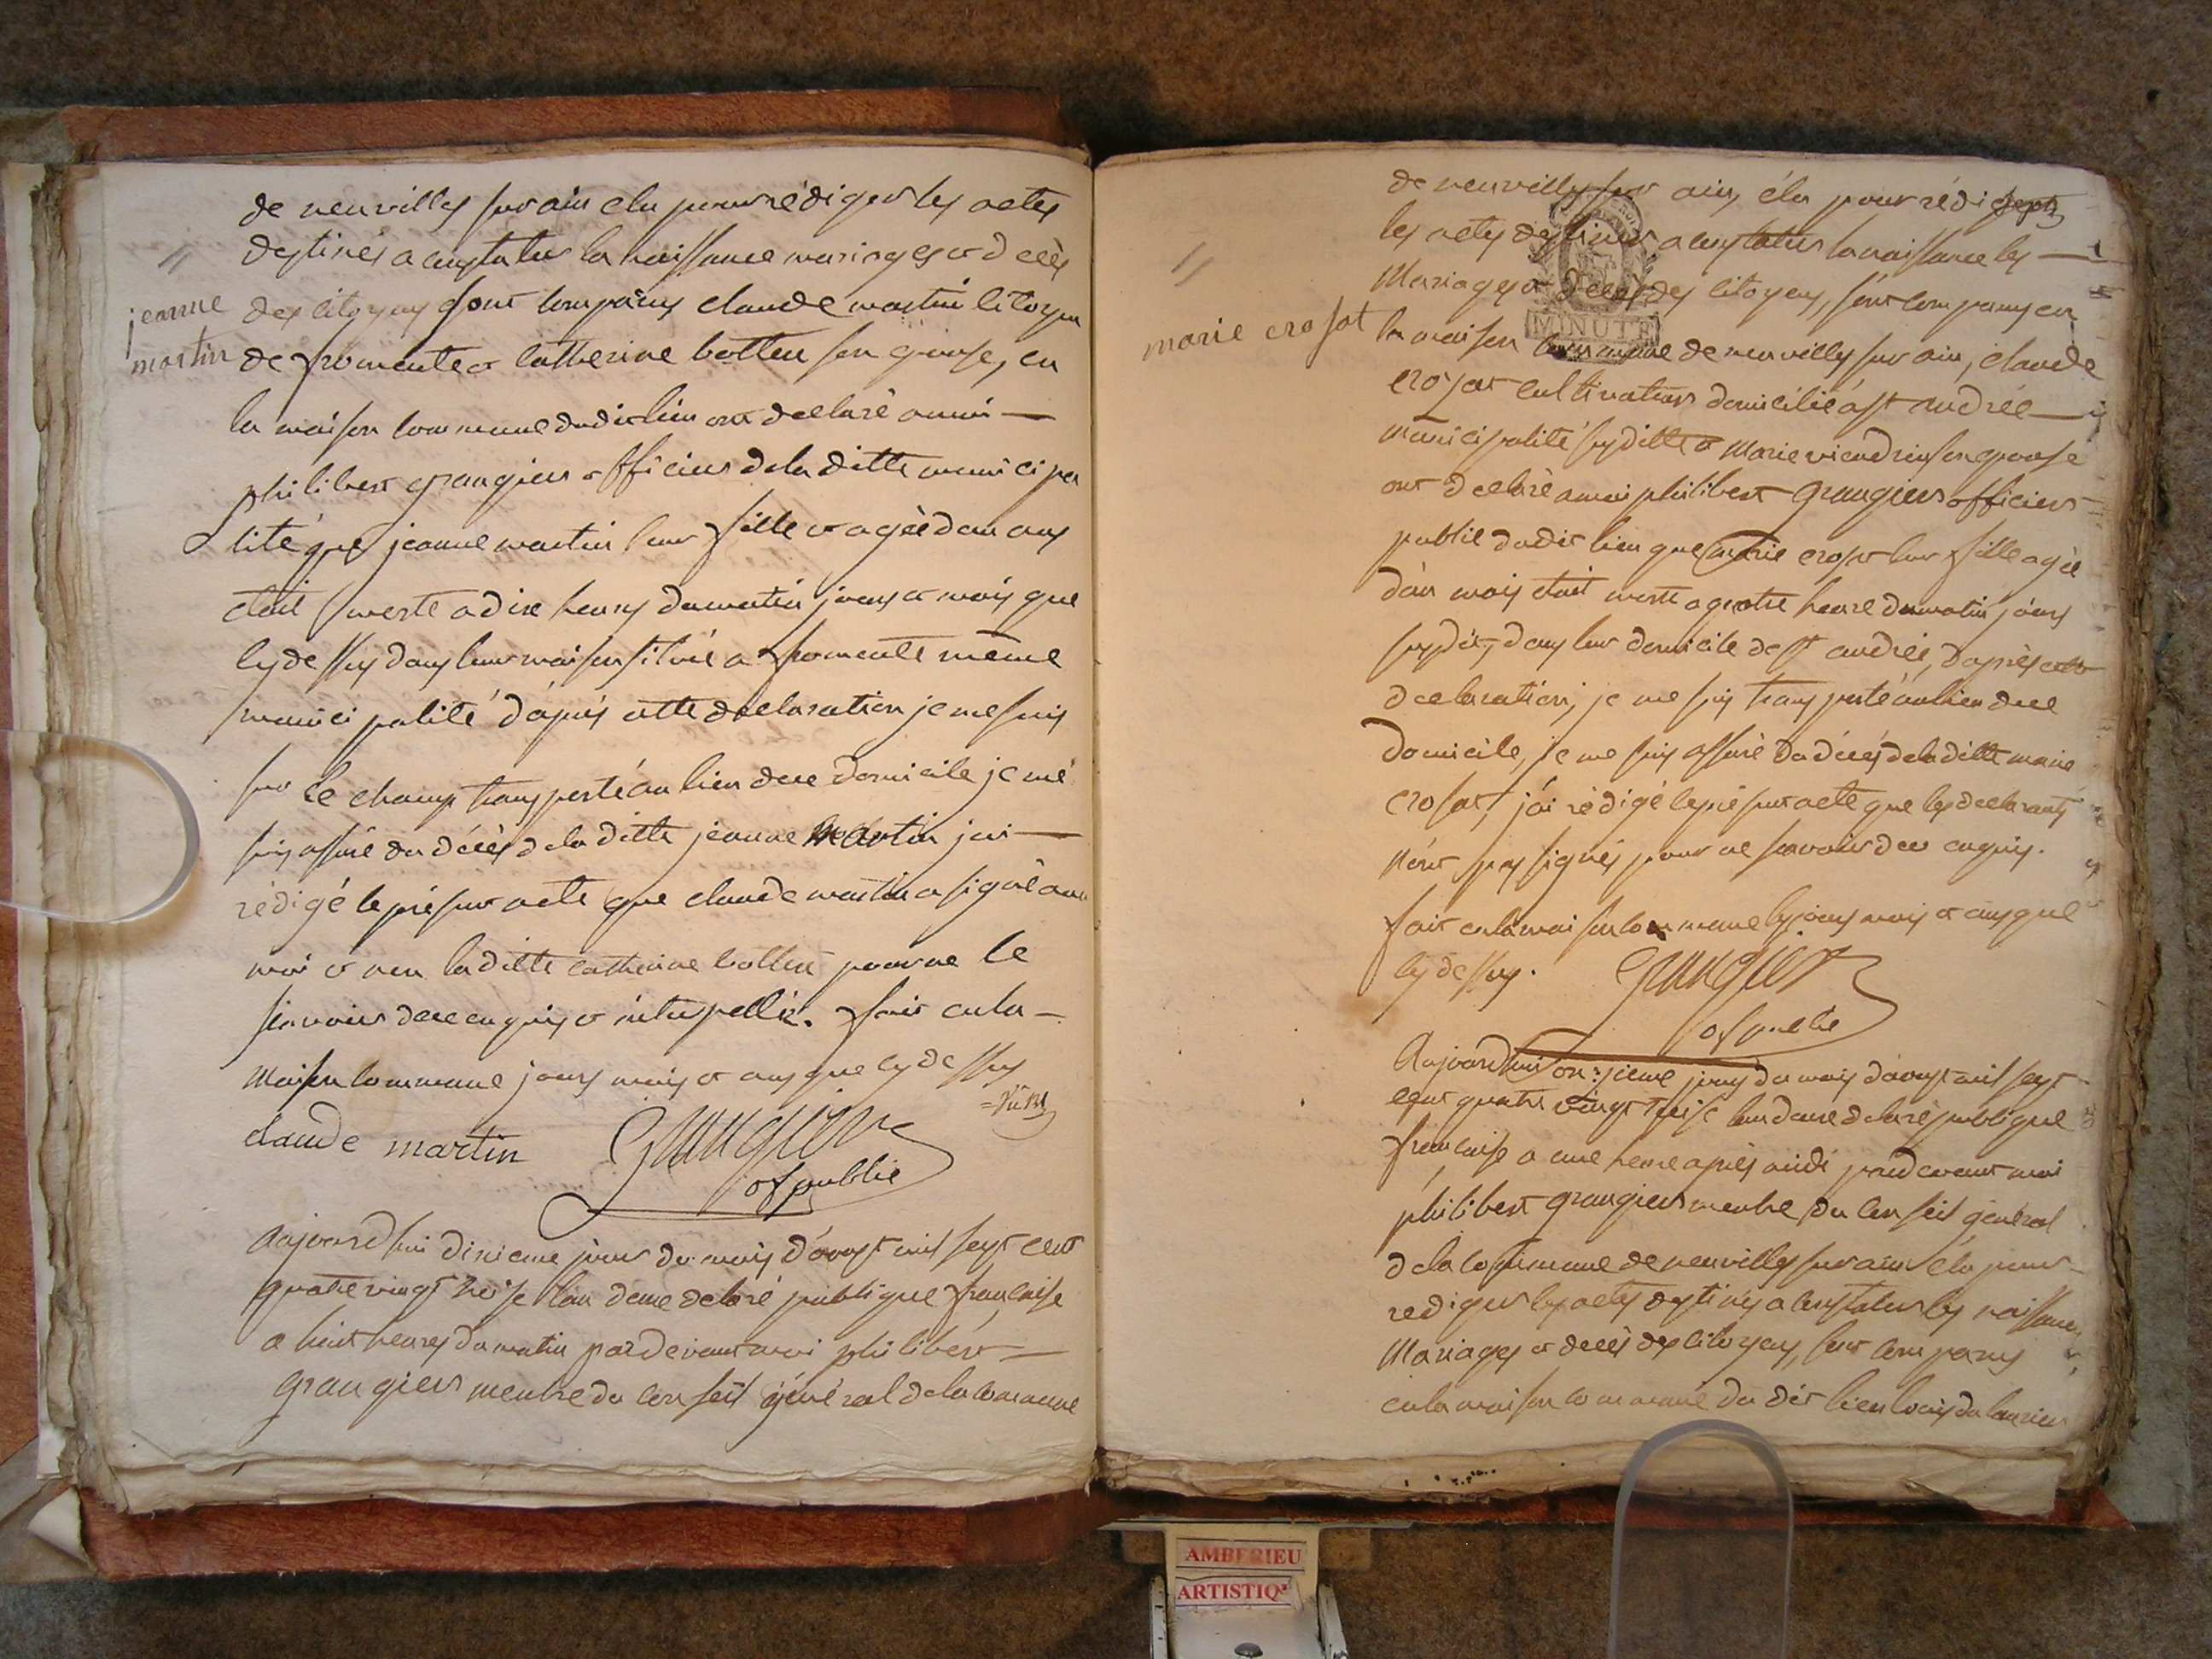 de neuville sur ain elu pour rédiger les actes
destinés a constater la naissance mariages et decès
des citoyens sont comparus claude martin citoyen
jeanne
martin
de fromente et catherine botteu son epouse, en
la maison commune dudit lieu ont declaré a moi
philibert grangier officier de la ditte municipa
lité que jeanne martin leur fille et agèe dun ans
etoit morte a dix heures du matin jours et mois que
cy dessus dans leur maison située a fromente même
municipalité d'après cette declaration je me suis
sur le champ transporté au lieu de ce domicile je me
suis assuré du décès de la ditte jeanne Martin jai
rédigé le présent acte que claude martin a signé avec
moi et non la ditte catherine botteu pour ne le
scavoir de ce enquis et interpellée. fait en la
maison commune jours mois et ans que cy dessus
claude martin
Grangier
of public
aujourd'hui dixieme jour du mois d'avost mil sept cent
quatre vingt treise l'an deux de la ré publique francaise
a huit heures du matin par devant moi philibert
grangier menbre du conseil général de la commune
de neuville sur ain, élu pour rédiger
les actes destinés a constater la naissance les
Mariages et decès des citoyens, sont comparus en
MINUTE
marie crosat
la maison commune de neuville sur ain, claude
crosat cultivateur domicilié a st andrée
municipalité susditte et Marie son epouse
ont declaré a moi philibert grangier officier
public dudit lieu que marie crosat leur fille agèe
d'un mois etoit morte a quatre heure du matin jours
susdit, dans leur domicile de st andrée, d'après cette
declaration, je me suis transporté au lieu de ce
domicile, je me suis assuré du décès de la ditte marie
crosat, j'ai rédigé le présent acte que les declarants
n'ont pas signés pour ne scavoir de ce enquis.
fait en la maison commune les jours mois et ans que
cy dessus.
Grangier
of public
Aujourd'hui onzieme jour du mois d'avost mil sept
cent quatre vingt treise l'an deux de la ré publique
francaise a une heure après midi par devant moi
philibert grangier menbre du conseil général
de la commune de neuville sur ain élu pour
rediger les actes destinés a constater les naissances
Mariages et decès des citoyens, sont comparus
en la maison commune du dit lieu
AMBERIEU
ARTISTIQ